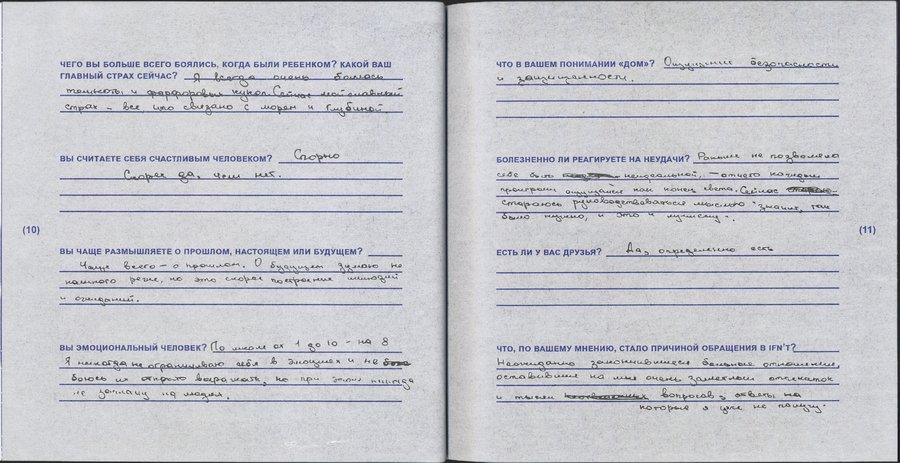 ЧЕГО ВЫ БОЛЬШЕ ВСЕГО БОЯЛИСЬ, КОГДА БЫЛИ РЕБЕНКОМ? КАКОЙ ВАШ
ГЛАВНЫЙ СТРАХ СЕЙЧАС? Я всегда очень боялась
темноты и фарфоровых кукол. Сейчас мой главный
страх – все, что связано с морем и глубиной.
ВЫ СЧИТАЕТЕ СЕБЯ СЧАСТЛИВЫМ ЧЕЛОВЕКОМ? Спорно
Скорее да, чем нет.
(10)
ВЫ ЧАЩЕ РАЗМЫШЛЯЕТЕ О ПРОШЛОМ, НАСТОЯЩЕМ ИЛИ БУДУЩЕМ?
Чаще всего – о прошлом. О будущем думаю не
намного реже, но это скорее построение иллюзий
и ожиданий.
ВЫ ЭМОЦИОНАЛЬНЫЙ ЧЕЛОВЕК? По шкале от 1 до 10 – на 8
Я никогда не ограничиваю себя в эмоциях и не
боюсь их открыто выражать, но при этом никогда
не на людях.
ЧТО В ВАШЕМ ПОНИМАНИИ «ДОМ»? Ощущение безопасности
и защищенности.
БОЛЕЗНЕННО ЛИ РЕАГИРУЕТЕ НА НЕУДАЧИ? Раньше не позволяла
себе быть неидеальной, – отчего каждый
проигрыш ощущался как конец света. Сейчас
стараюсь руководствоваться мыслью "значит, так
было нужно, и это к лучшему".
(11)
ЕСТЬ ЛИ У ВАС ДРУЗЬЯ? Да, определенно есть
ЧТО, ПО ВАШЕМУ МНЕНИЮ, СТАЛО ПРИЧИНОЙ ОБРАЩЕНИЯ В IFN'T?
Неожиданно закончившиеся больные отношения,
оставившие на мне очень заметный отпечаток
и тысячи вопросов, ответы на
которые я уже не получу.